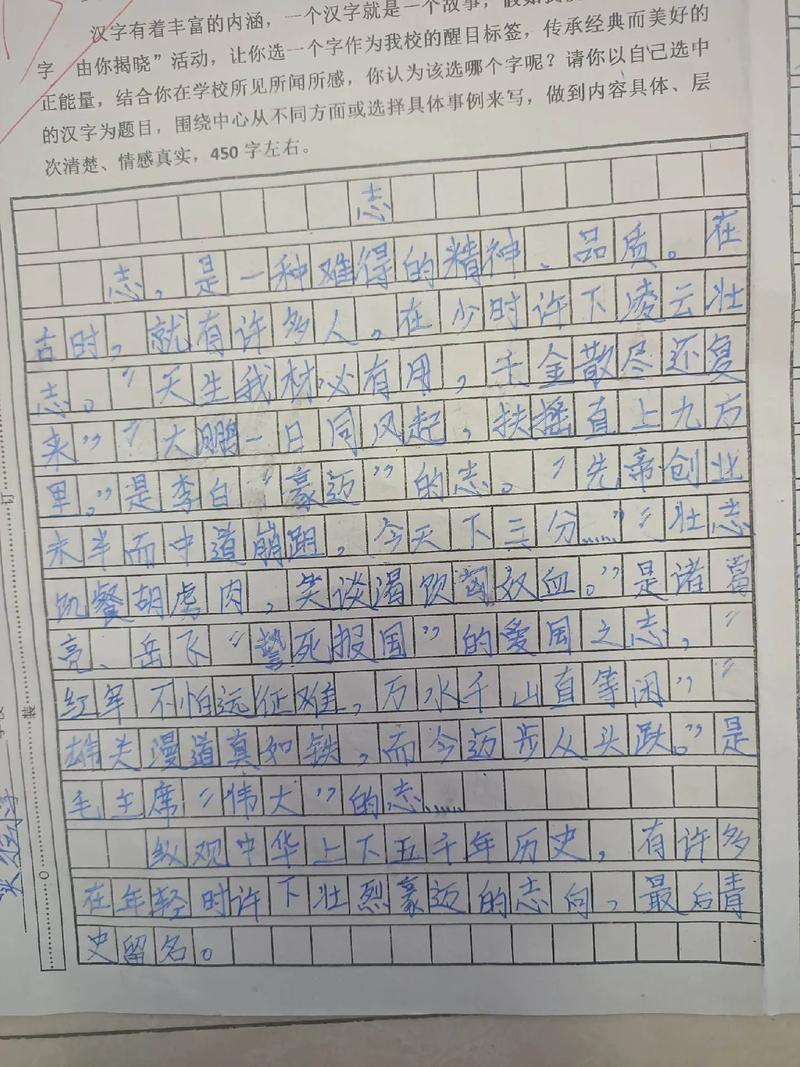 汉字有着丰富的内涵，一个汉字就是一个故事，假如我校
字 由你揭晓”活动，让你选一个字作为我校的醒目标签，传承经典而美好的
正能量，结合你在学校所见所闻所感，你认为该选哪个字呢？请你以自己选中
的汉字为题目，围绕中心从不同方面或选择具体事例来写，做到内容具体、层
次清楚、情感真实，450字左右。
志
志，是一种难得的精神、品质。在
古时，就有许多人，在少时许下凌云壮
志。“天生我材必有用，千金散尽还复
来”“大鹏一日同风起，扶摇直上九万
里。”是李白“豪迈”的志。“先帝创业
未半而中道崩殂，今天下三分……”“壮志
饥餐胡虏肉，笑谈渴饮匈奴血。”是诸葛
亮、岳飞“誓死报国”的爱国之志，“
红军不怕远征难，万水千山直等闲”“
雄关漫道真如铁，而今迈步从头跃。”是
毛主席“伟大”的志……
纵观中华上下五千年历史，有许多
在年轻时许下壮烈豪迈的志向，最后青
史留名。
订
装